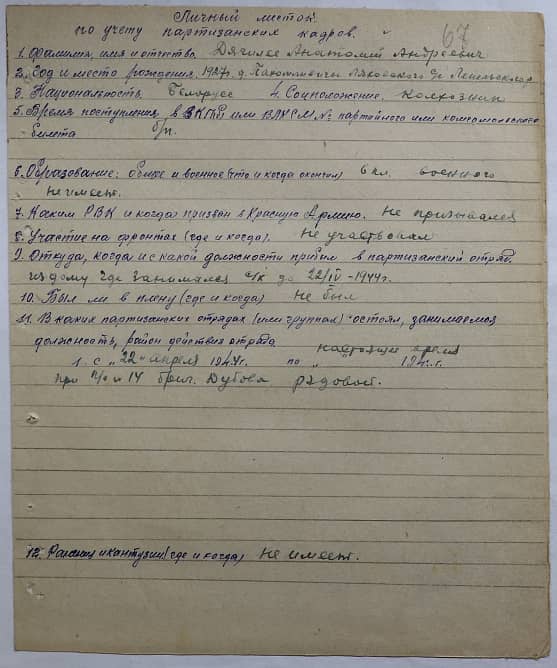 Личный листок
по учету партизанских кадров.
67
1. Фамилия, имя и отчество Дягилев Анатолий Андреевич
2. Год и место рождения 1927г. д.
3. Национальность Белорусс 4. Соцположение. Колхозник
5. Время поступления в ВКПб или ВЛКСМ № партийного или комсомольского
билета б/п.
6. Образование: общее и военное (что и когда окончил) 6 кл. военного
не имеет.
7. Каким РВК и когда призван в Красную Армию. Не призывался
8. Участие на фронтах (где и когда). Не участвовал
9. Откуда, когда и с какой должности прибыл в партизанский отряд.
из дому где занимался с/х до 22/IV-1944г.
10. Был ли в плену (где и когда) Не был
11. В каких партизанских отрядах (или группах) состоял, занимаемая
должность, район действия отряда настоящее время
1. с "22" апреля 1944г. по " 194 г.
при п/о № 14 бриг. Дубова рядовой.
12. Ранения и контузии (где и когда) Не имеет.